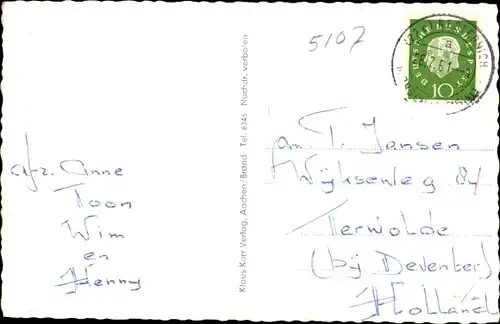 5107
DEUTSCHE BUNDESPOST
10
afz. Anne
Toon
Wim
en
Henny
Klaus Korr Verlag, Aachen/Brand Tel. 6345 Nachdr. verboten
fam. T. Jansen
84
Terwolde
(bij Deventer)
Holland